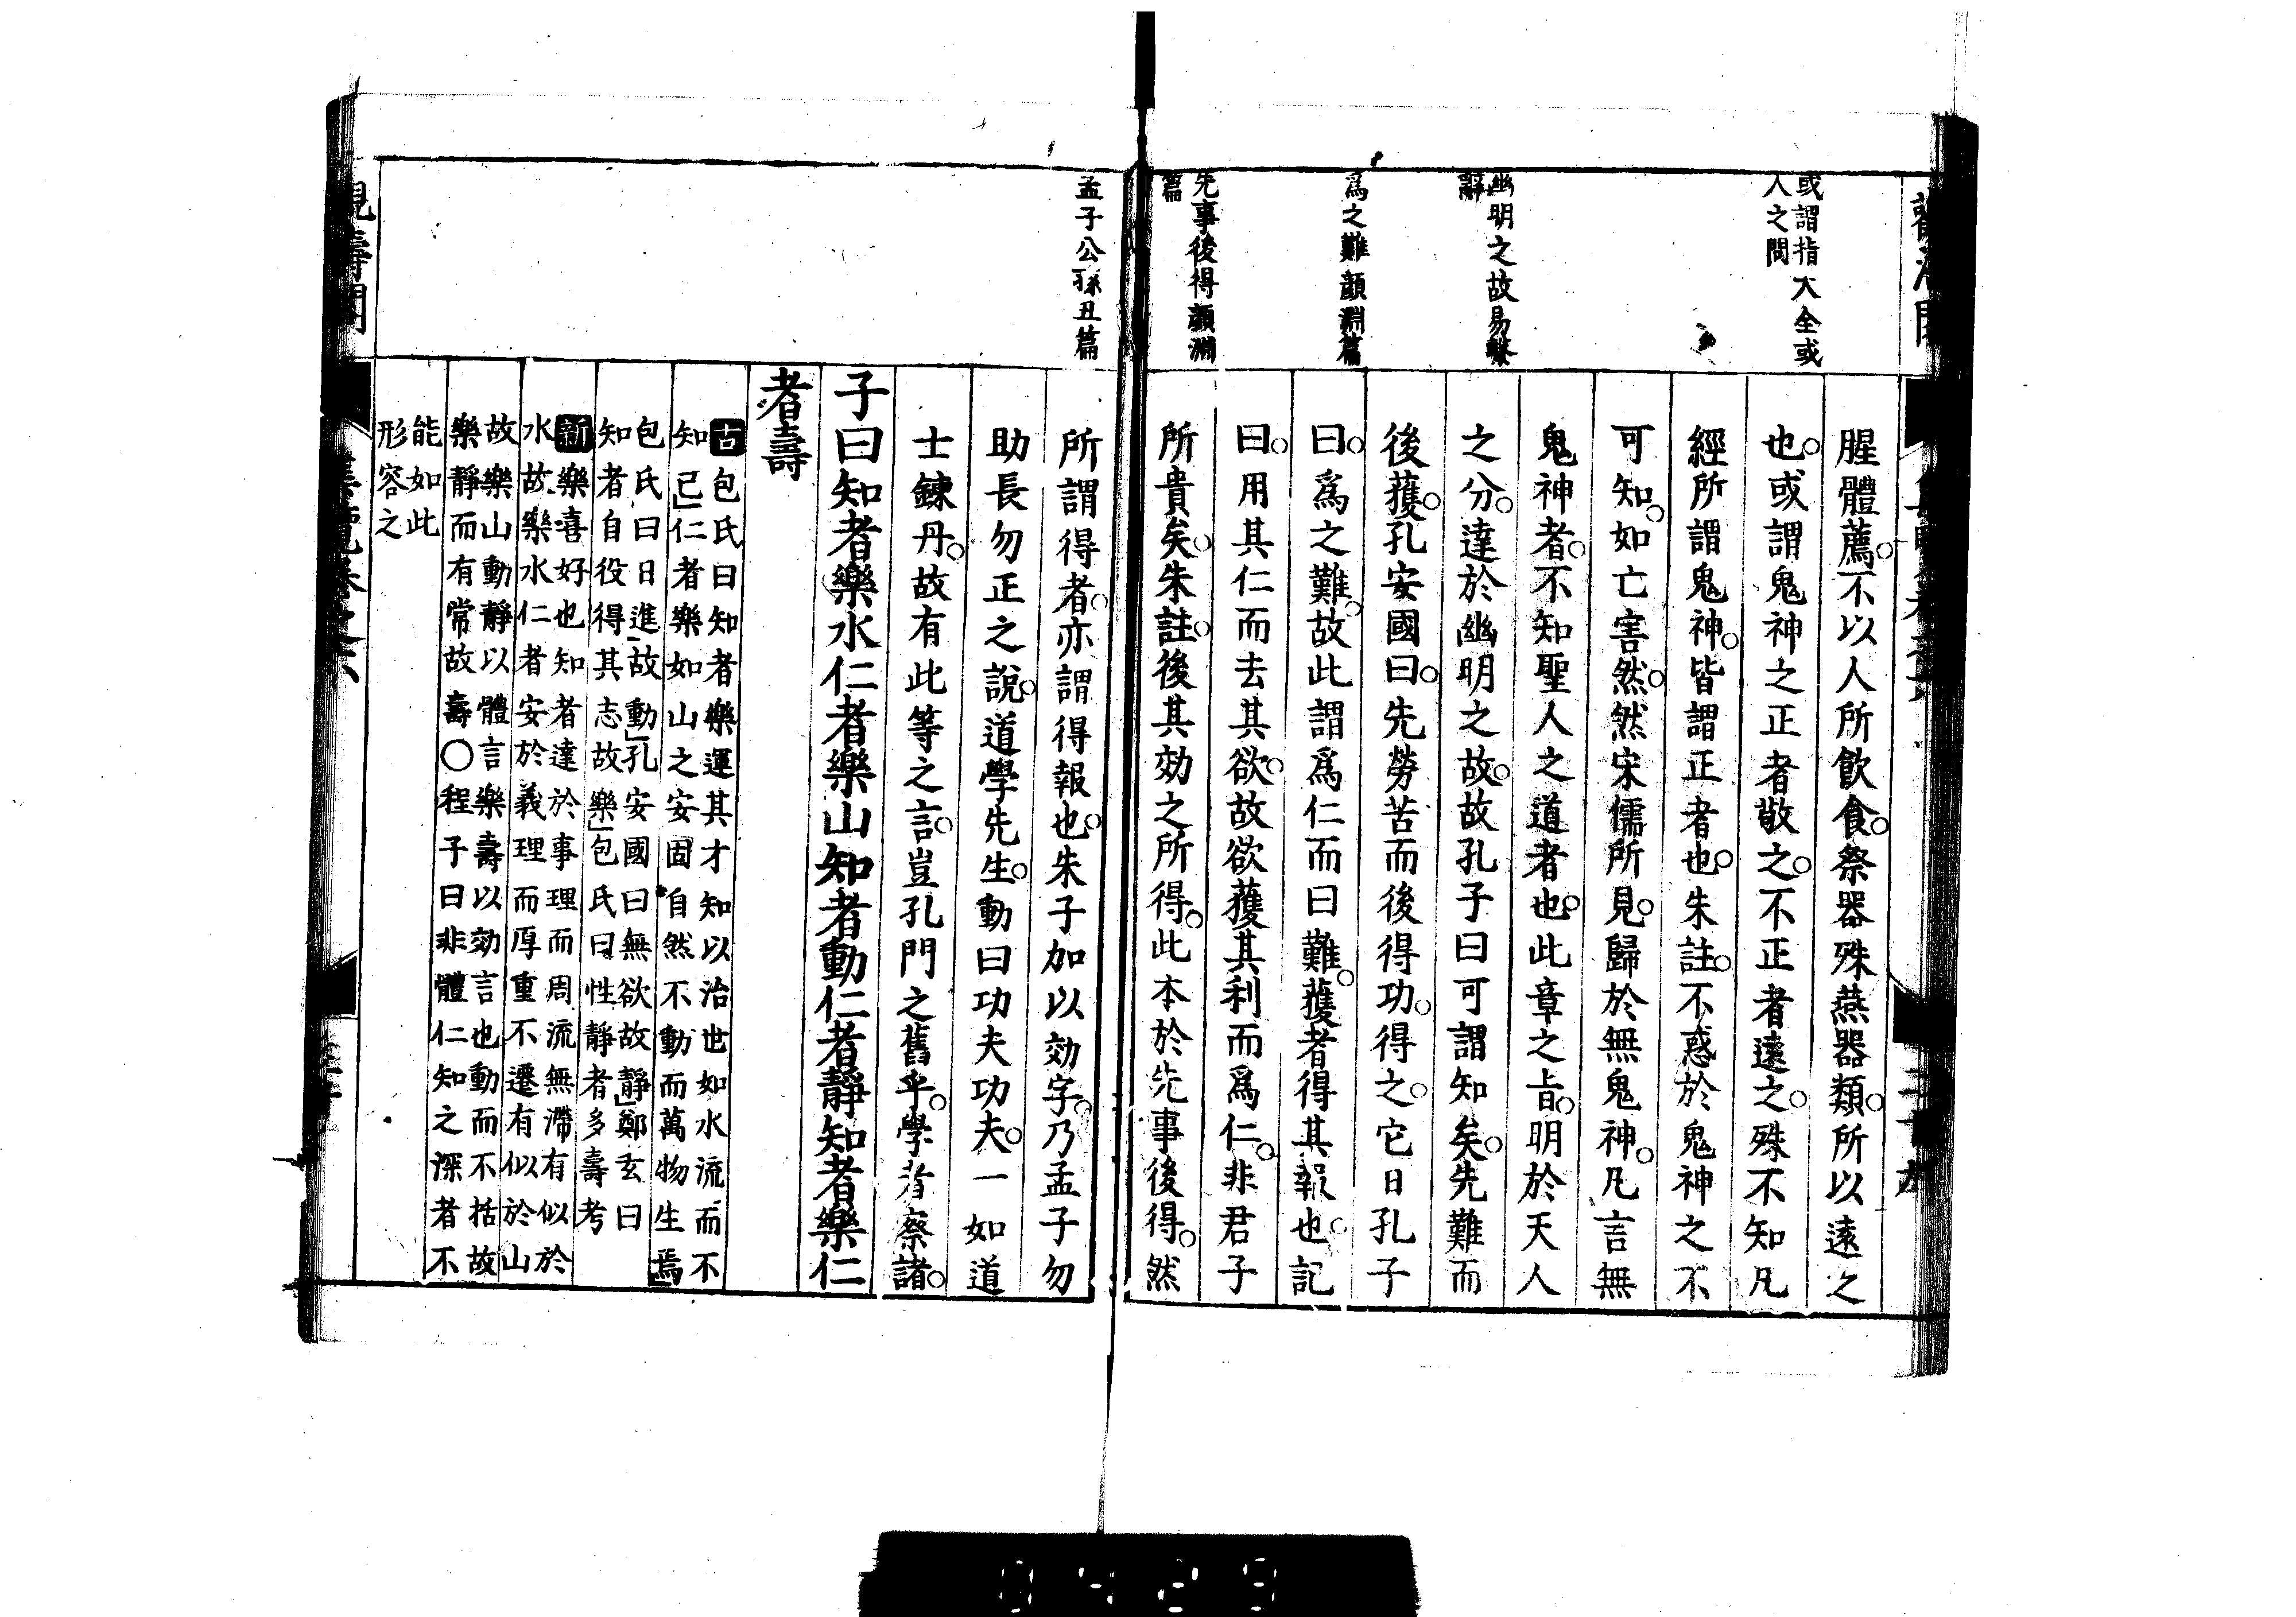 或謂指大全或
人之問
幽明之故易繫
辭
爲之難顏淵篇
先事後得顏淵
篇
腥體薦不以人所飮食祭器殊燕器類所以遠之
也或謂鬼神之正者敬之不正者遠之殊不知凡
經所謂鬼神皆謂正者也朱註不惑於鬼神之不
可知如亡害然然宋儒所見歸於無鬼神凡言無
鬼神者不知聖人之道者也此章之旨明於天人
之分達於幽明之故故孔子曰可謂知矣先難而
後獲孔安國曰先勞苦而後得功得之它日孔子
曰爲之難故此謂爲仁而曰難獲者得其報也記
曰用其仁而去其欲故欲獲其利而爲仁非君子
所貴矣朱註後其効之所得此本於先事後得然
孟子公孫丑篇
所謂得者亦謂得報也朱子加以効字乃孟子勿
助長勿正之說道學先生動曰功夫功夫一如道
士鍊丹故有此等之言豈孔門之舊乎學者察諸
子曰知者樂水仁者樂山知者動仁者靜知者樂仁
者壽
古包氏曰知者樂運其才知以治世如水流而不
知已仁者樂如山之安固自然不動而萬物生焉
包氏曰日進故動孔安國曰無欲故靜鄭玄曰
知者自役得其志故樂包氏曰性靜者多壽考
新樂喜好也知者達於事理而周流無滯有似於
水故樂水仁者安於義理而厚重不遷有似於山
故樂山動靜以體言樂壽以効言也動而不括故
樂靜而有常故壽〇程子曰非體仁知之深者不
能如此
形容之
集覽卷之六